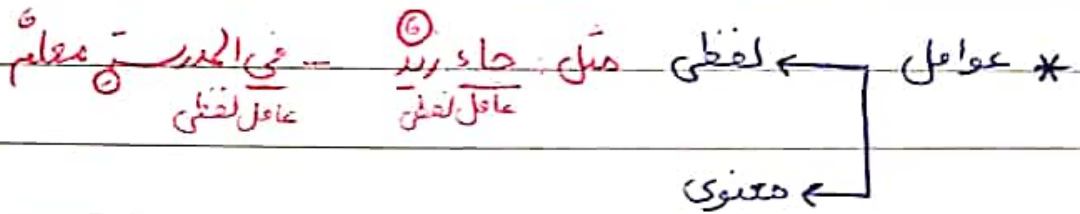 * عوامل ← لفظي مثل: جاء زيد -- في المدرسة معلم
عامل لفظي عامل لفظي
← معنوى